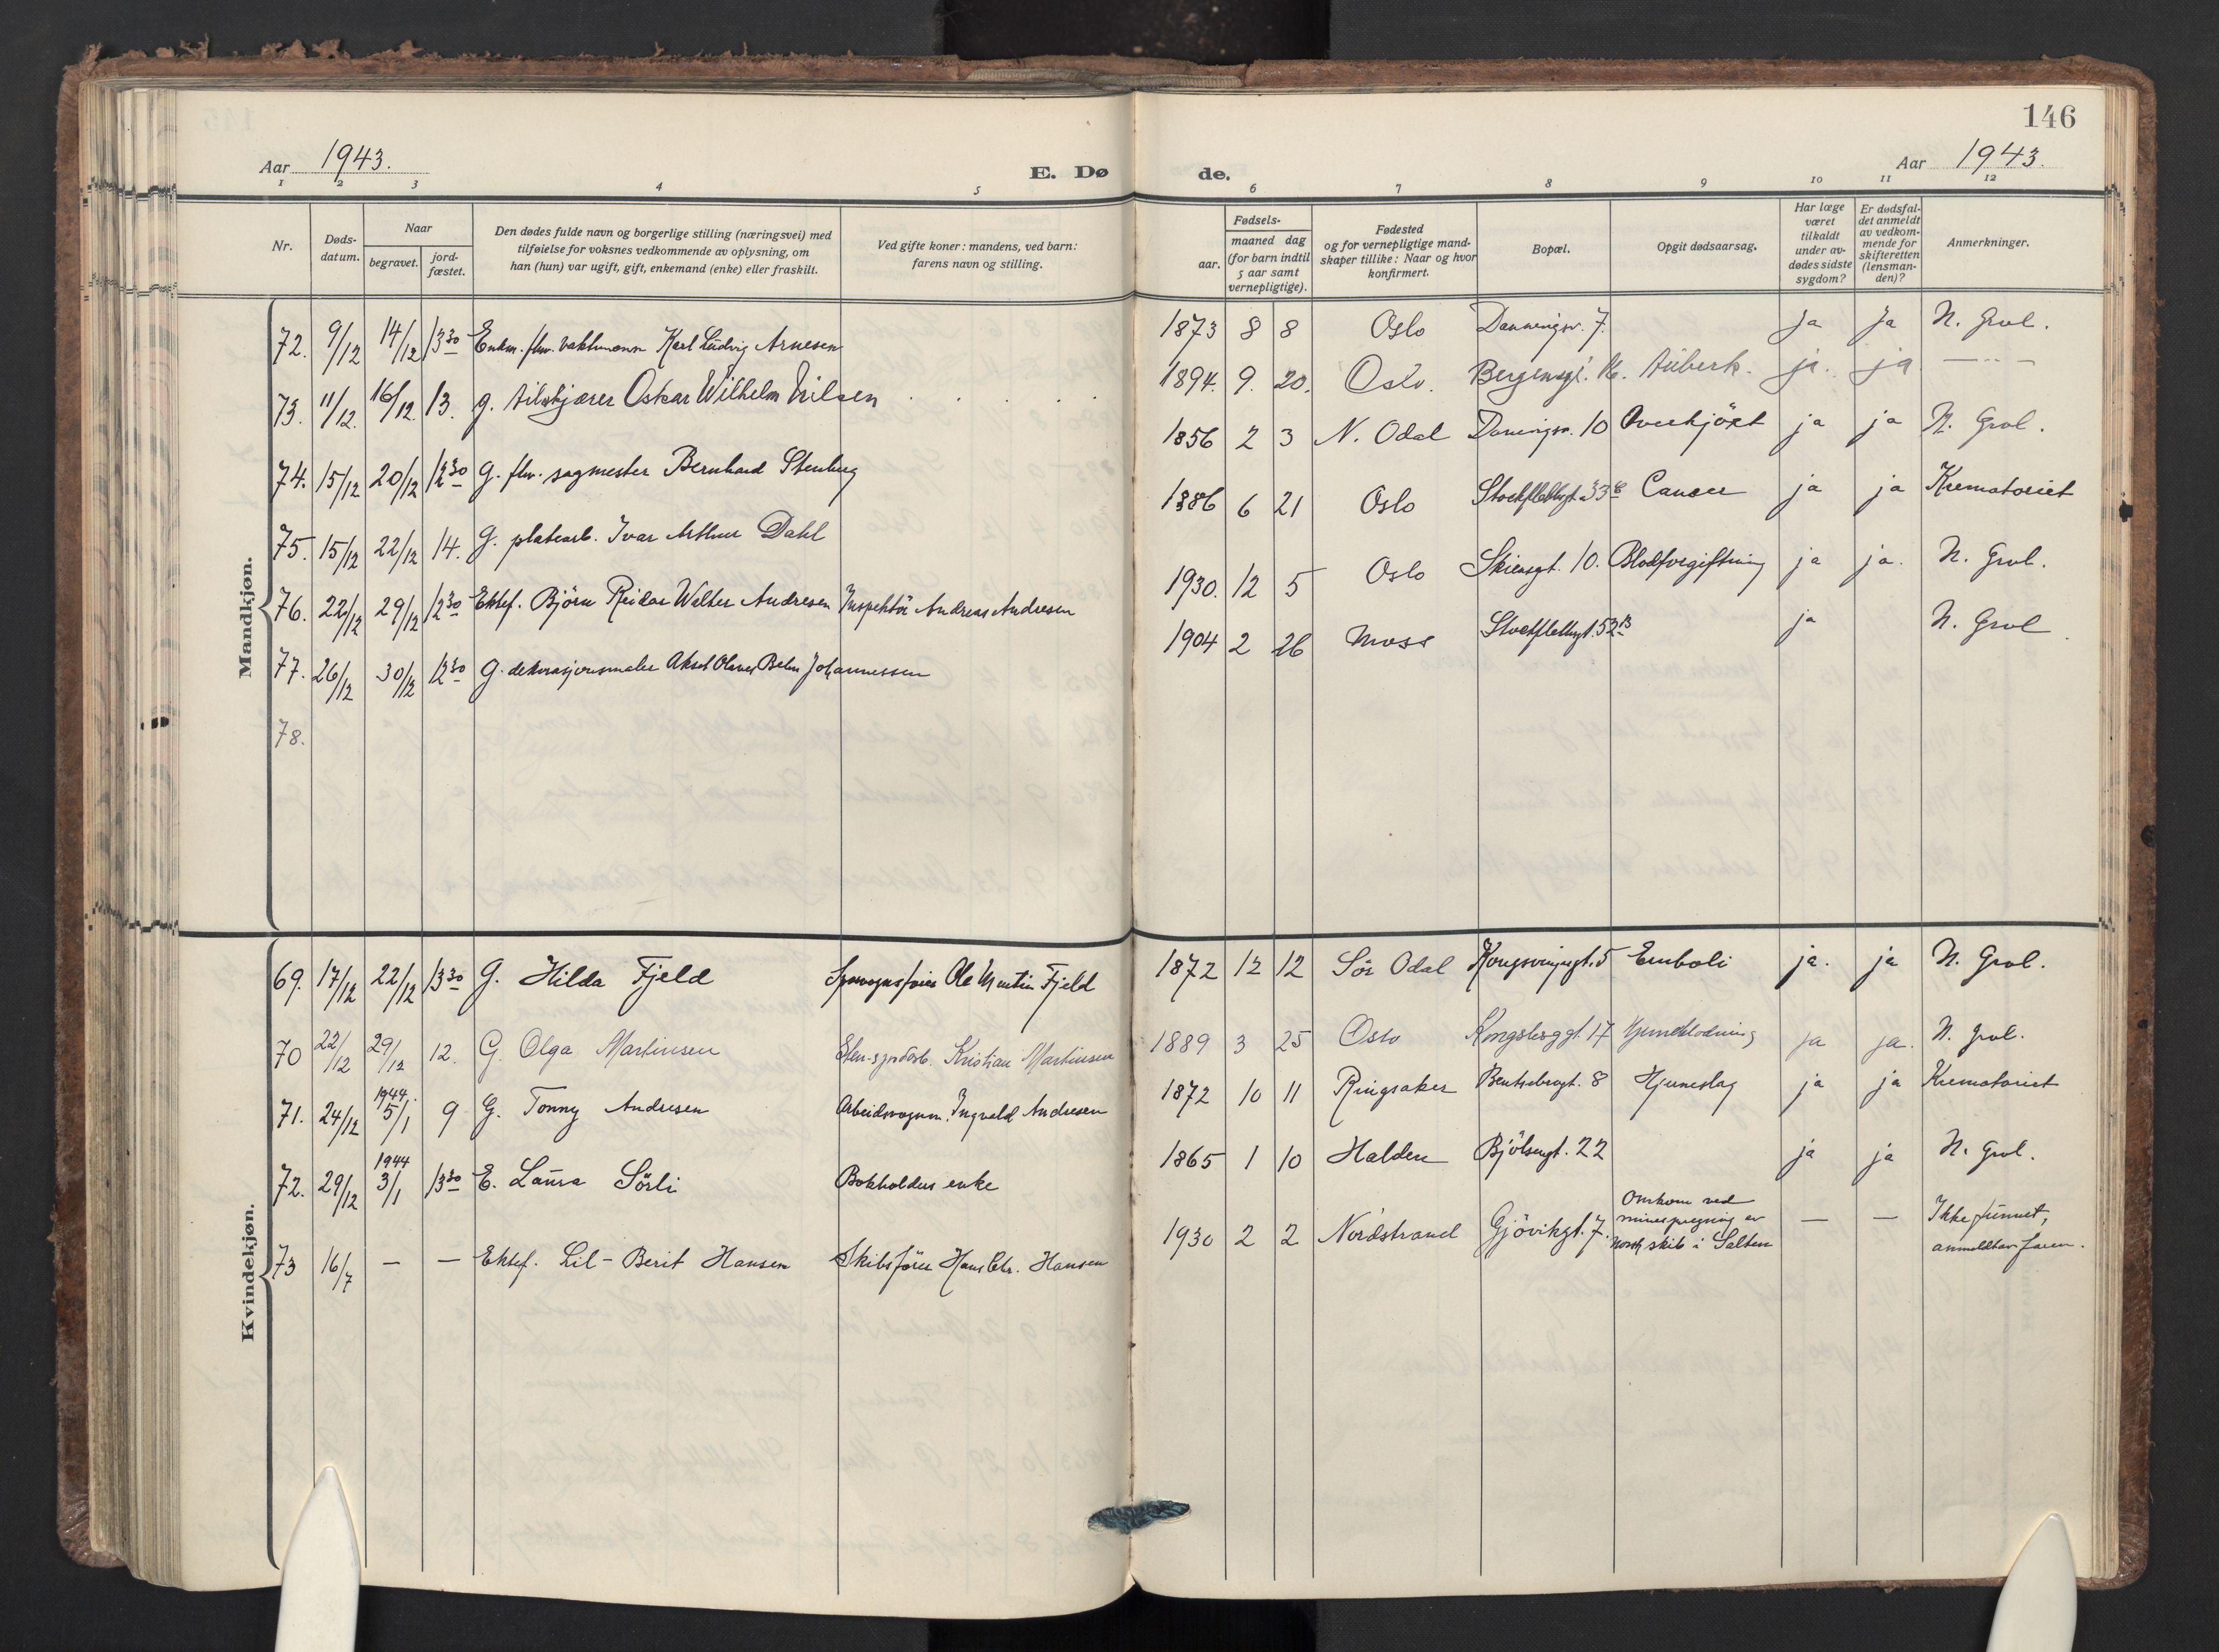 146
Aar 1943.
E. Dø de.
Aar 1943.
1 2 3 4 5 6 7 8 9 10 11 12
Nr.
Døds-
datum.
Naar
begravet.
jord-
fæstet.
Den dødes fulde navn og borgerlige stilling (næringsvei) med
tilføielse for voksnes vedkommende av oplysning, om
han (hun) var ugift, gift, enkemand (enke) eller fraskilt.
Ved gifte koner: mandens, ved barn:
farens navn og stilling.
Fødsels-
aar.
maaned dag
(for barn indtil
5 aar samt
vernepligtige).
Fødested
og for vernepligtige mand-
skaper tillike: Naar og hvor
konfirmert.
Bopæl.
Opgit dødsaarsag.
Har læge
været
tilkaldt
under av-
dødes sidste
sygdom?
Er dødsfal-
det anmeldt
av vedkom-
mende for
skifteretten
(lensman-
den)?
Anmerkninger.
Mandkjøn.
72. 9/12 14/12 13 30 Enkm. fhv. vaktmann Karl Ludvig Arnesen 1873 8 8 Oslo 7. Ja Ja N. Grvl.
73. 11/12 16/12 13. g. Oskar Wilhelm Nilsen 1894. 9. 20. Oslo. Bergensgt. 16. Tüberk. ja. ja — " —
74. 15/12 20/12 12 30 G. fhv. sagmester Bernhard Stenberg 1856 2 3 N. Odal 10 Overkjört ja ja N. Grvl.
75. 15/12 22/12 14. G. platearb. Ivar Arthur Dahl 1886 6 21 Oslo Stockflethsgt. 33 Cancer ja ja Krematoriet
76. 22/12 29/12 12 30 Ektef. Björn Reidar Walter Andresen Inspektör Andreas Andresen 1930. 12 5 Oslo Skiensgt. 10. Blodforgiftning ja ja. N. Grvl.
77. 26/12 30/12 12 30 G. dekorasjonsmaler Aksel Olaves Johannessen 1904 2 26 Moss Stockflethsgt. 53 ja N. Grvl
78.
Kvindekjøn.
69. 17/12 22/12 13 30 G. Hilda Fjeld Sporvognsfører Ole Martin Fjeld 1872 12 12 Sör Odal Kongsvingergt. 5 Emboli ja. ja N. Grvl.
70 22/12 29/12 12. G. Olga Martinsen Kristian Martinsen 1889 3 25 Oslo Kongsberggt. 17 Hjerneblödning ja ja. N. Grvl.
71. 24/12 1944. 5/1 9 G. Tonny Andresen Arbeidsvognm. Ingvald Andresen 1872 10 11 Ringsaker Bentsebrogt. 8 Hjerneslag ja ja Krematoriet
72. 29/12 1944 3/1 13 30 E. Laura Sörli Bokholders enke 1865 1 10 Halden Bjölsengt. 22 ja ja N. Grvl.
73 16/7 — — Ektef. Lil-Berit Hansen Skibsförer Hans Chr. Hansen 1930 2 2 Nordstrand Gjövikgt. 7. Omkom ved
minespregning av
norsk skib i Salten — — Ikke funnet,
anmeldt av faren.